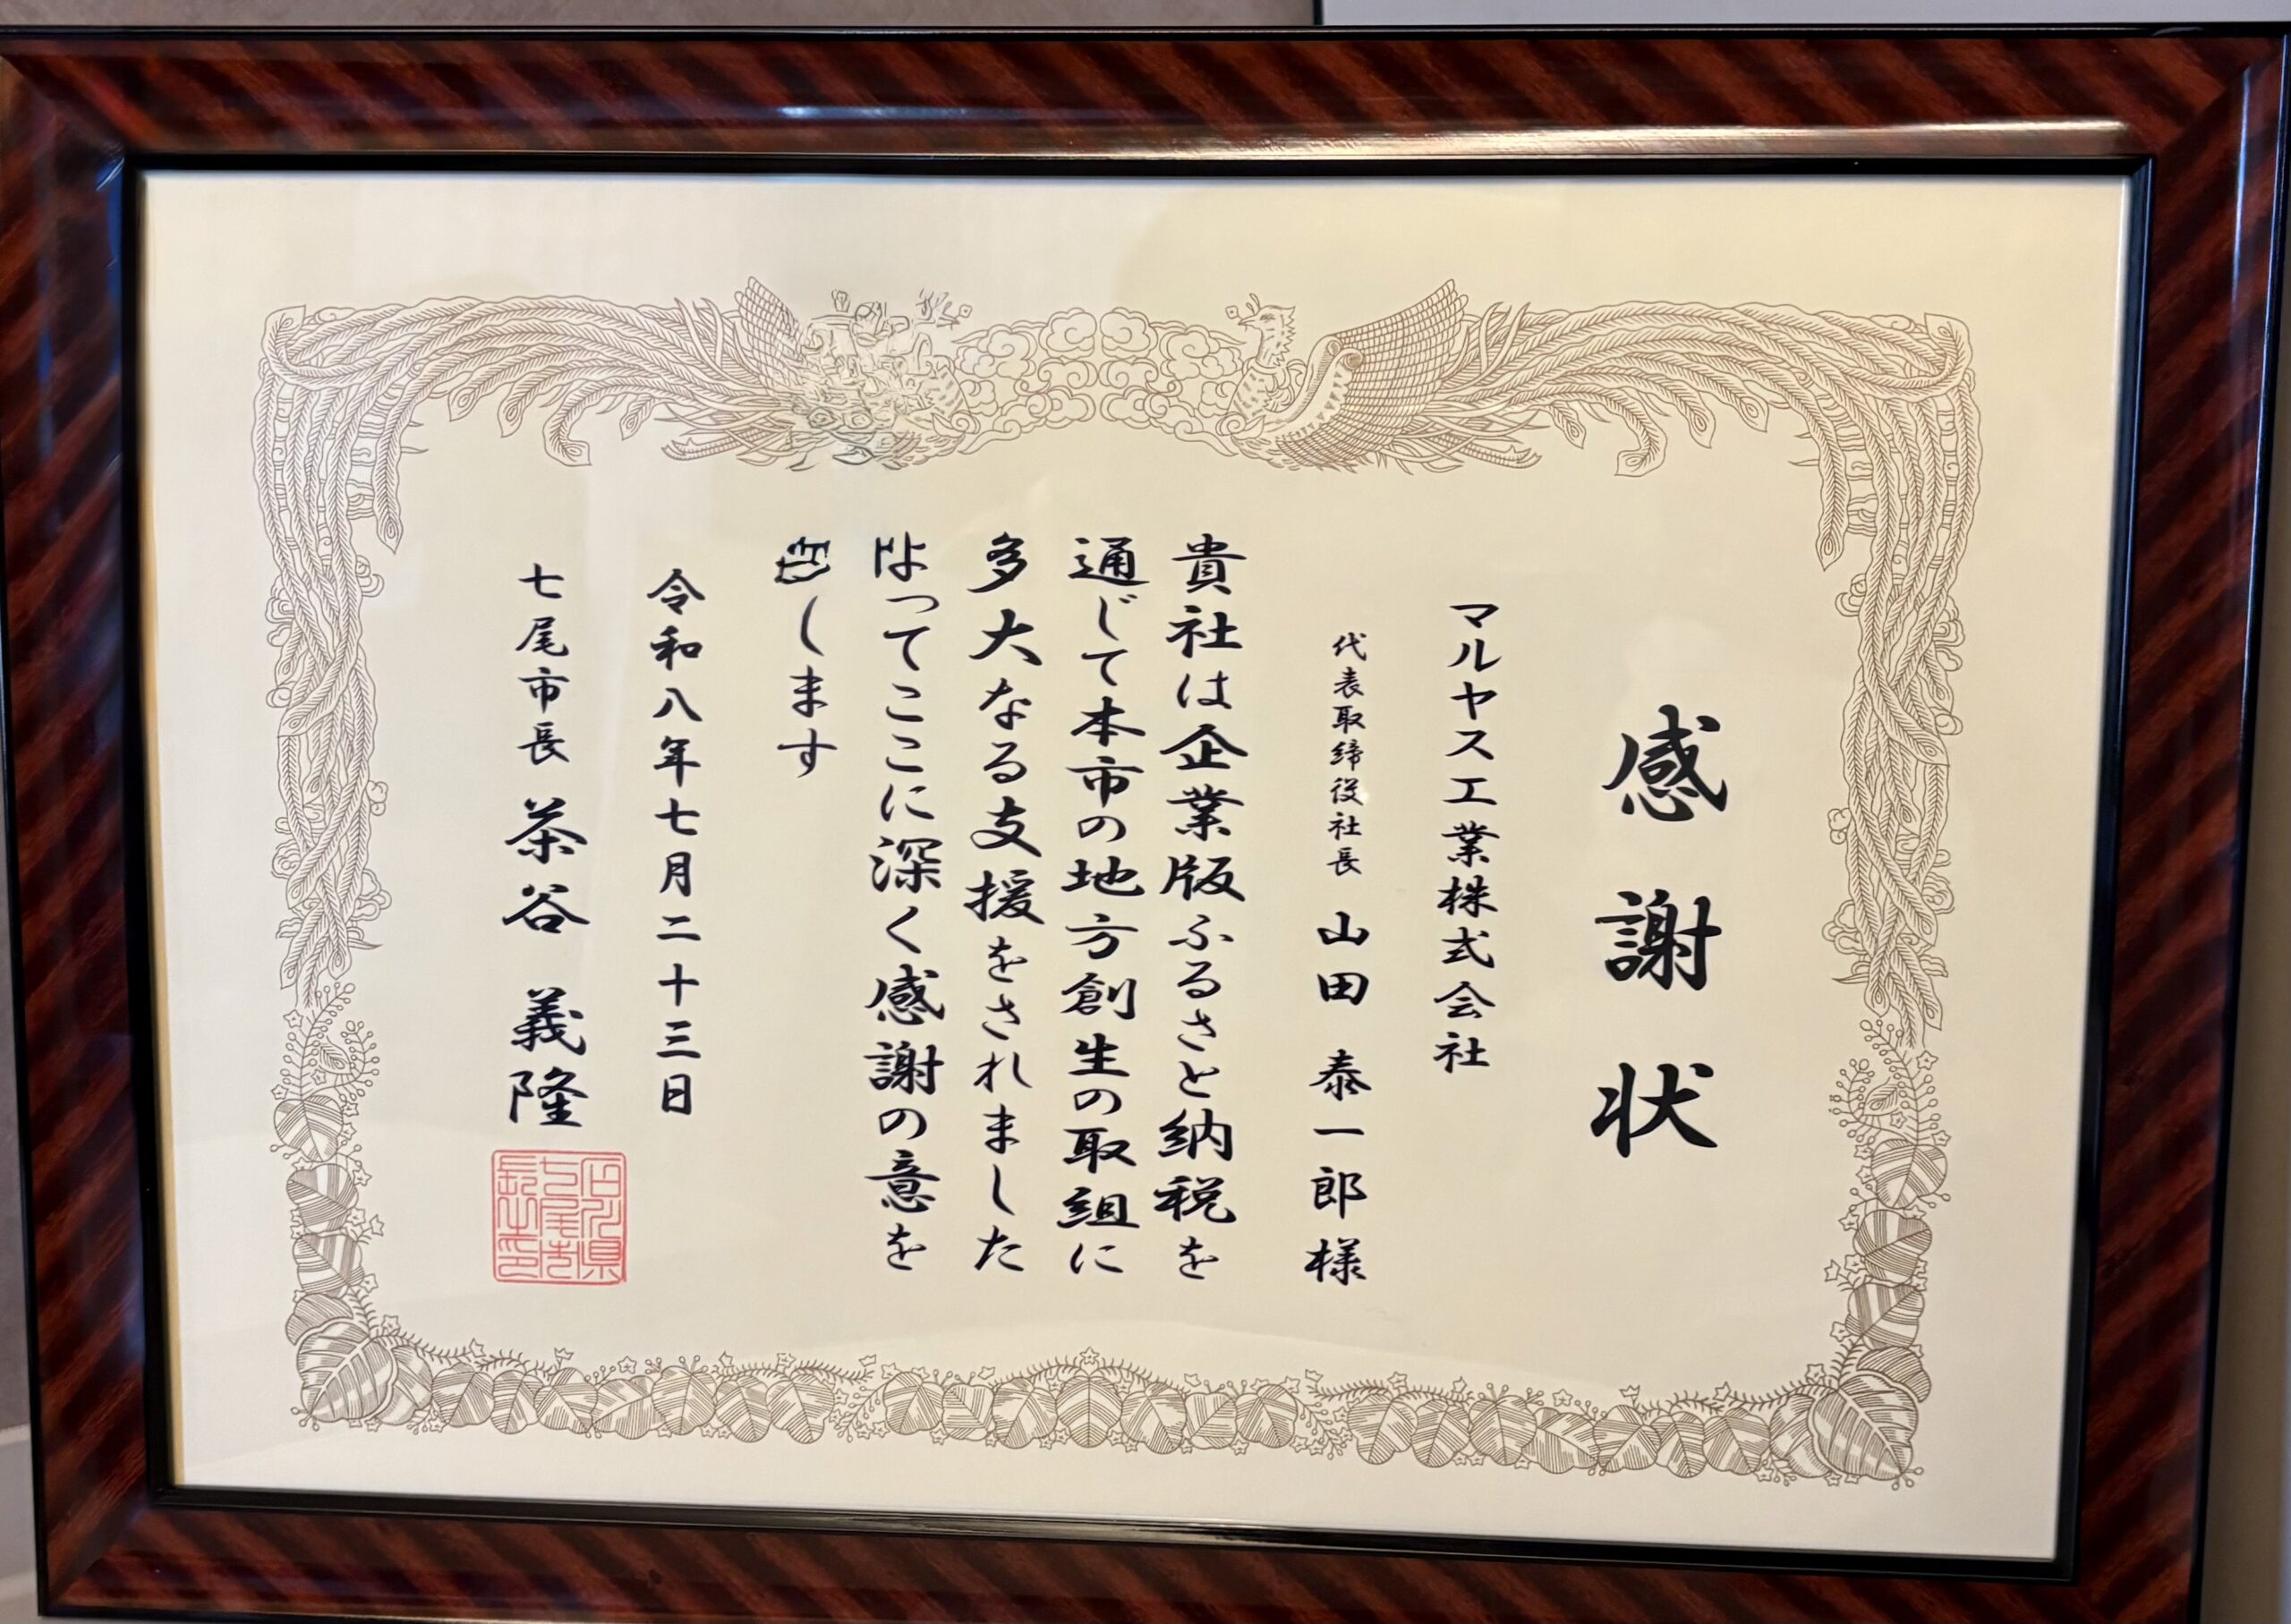 感謝状
マルヤス工業株式会社
代表取締役社長 山田 泰一郎 様
貴社は企業版ふるさと納税を
通じて本市の地方創生の取組に
多大なる支援をされました
ってここに深く感謝の意を
します
令和八年七月二十三日
七尾市長 茶谷 義隆